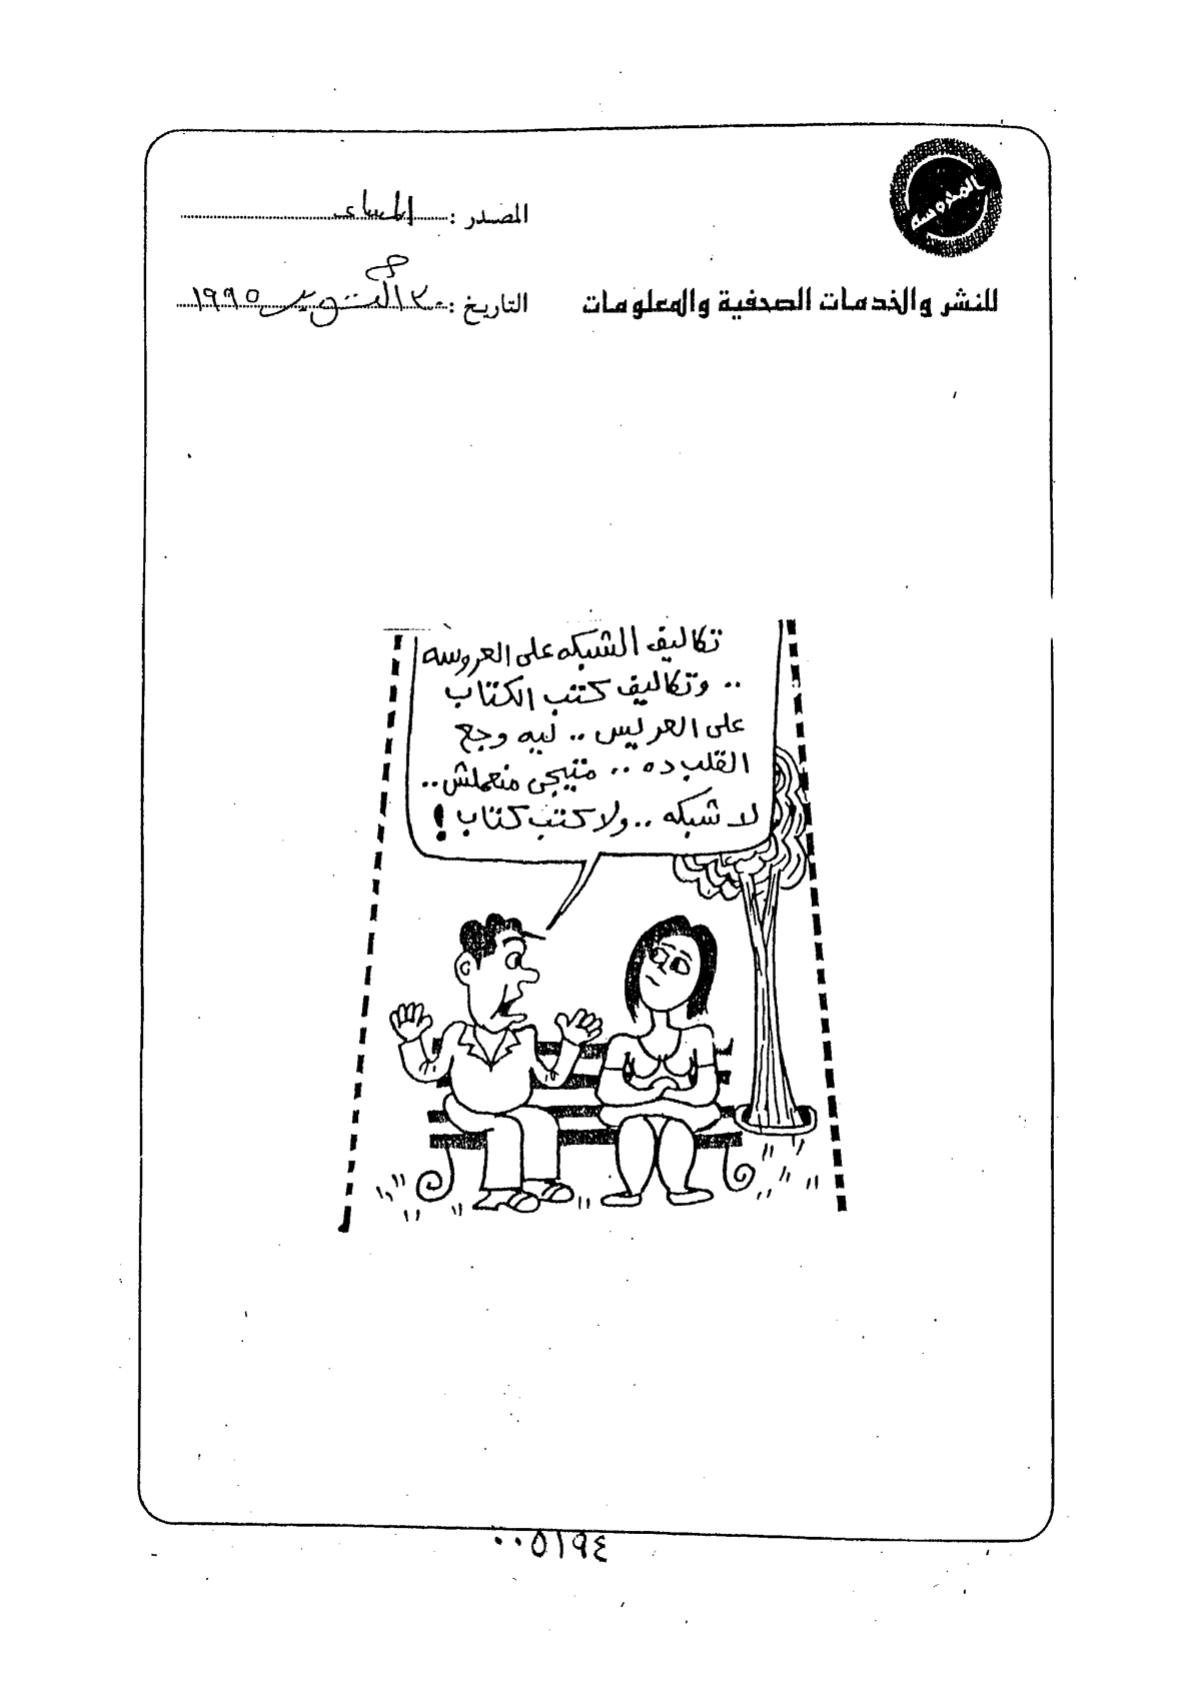 المحروسة
المصدر : المساء
للنشر والخدمات الصحفية والمعلومات
التاريخ : ٣٠ أكتوبر ١٩٩٥
تكاليف الشبكه على العروسه
.. وتكاليف كتب الكتاب
على العريس .. ليه وجع
القلب ده .. متيجى منعملش ..
لا شبكه .. ولا كتب كتاب !
٠٠٥١٩٤